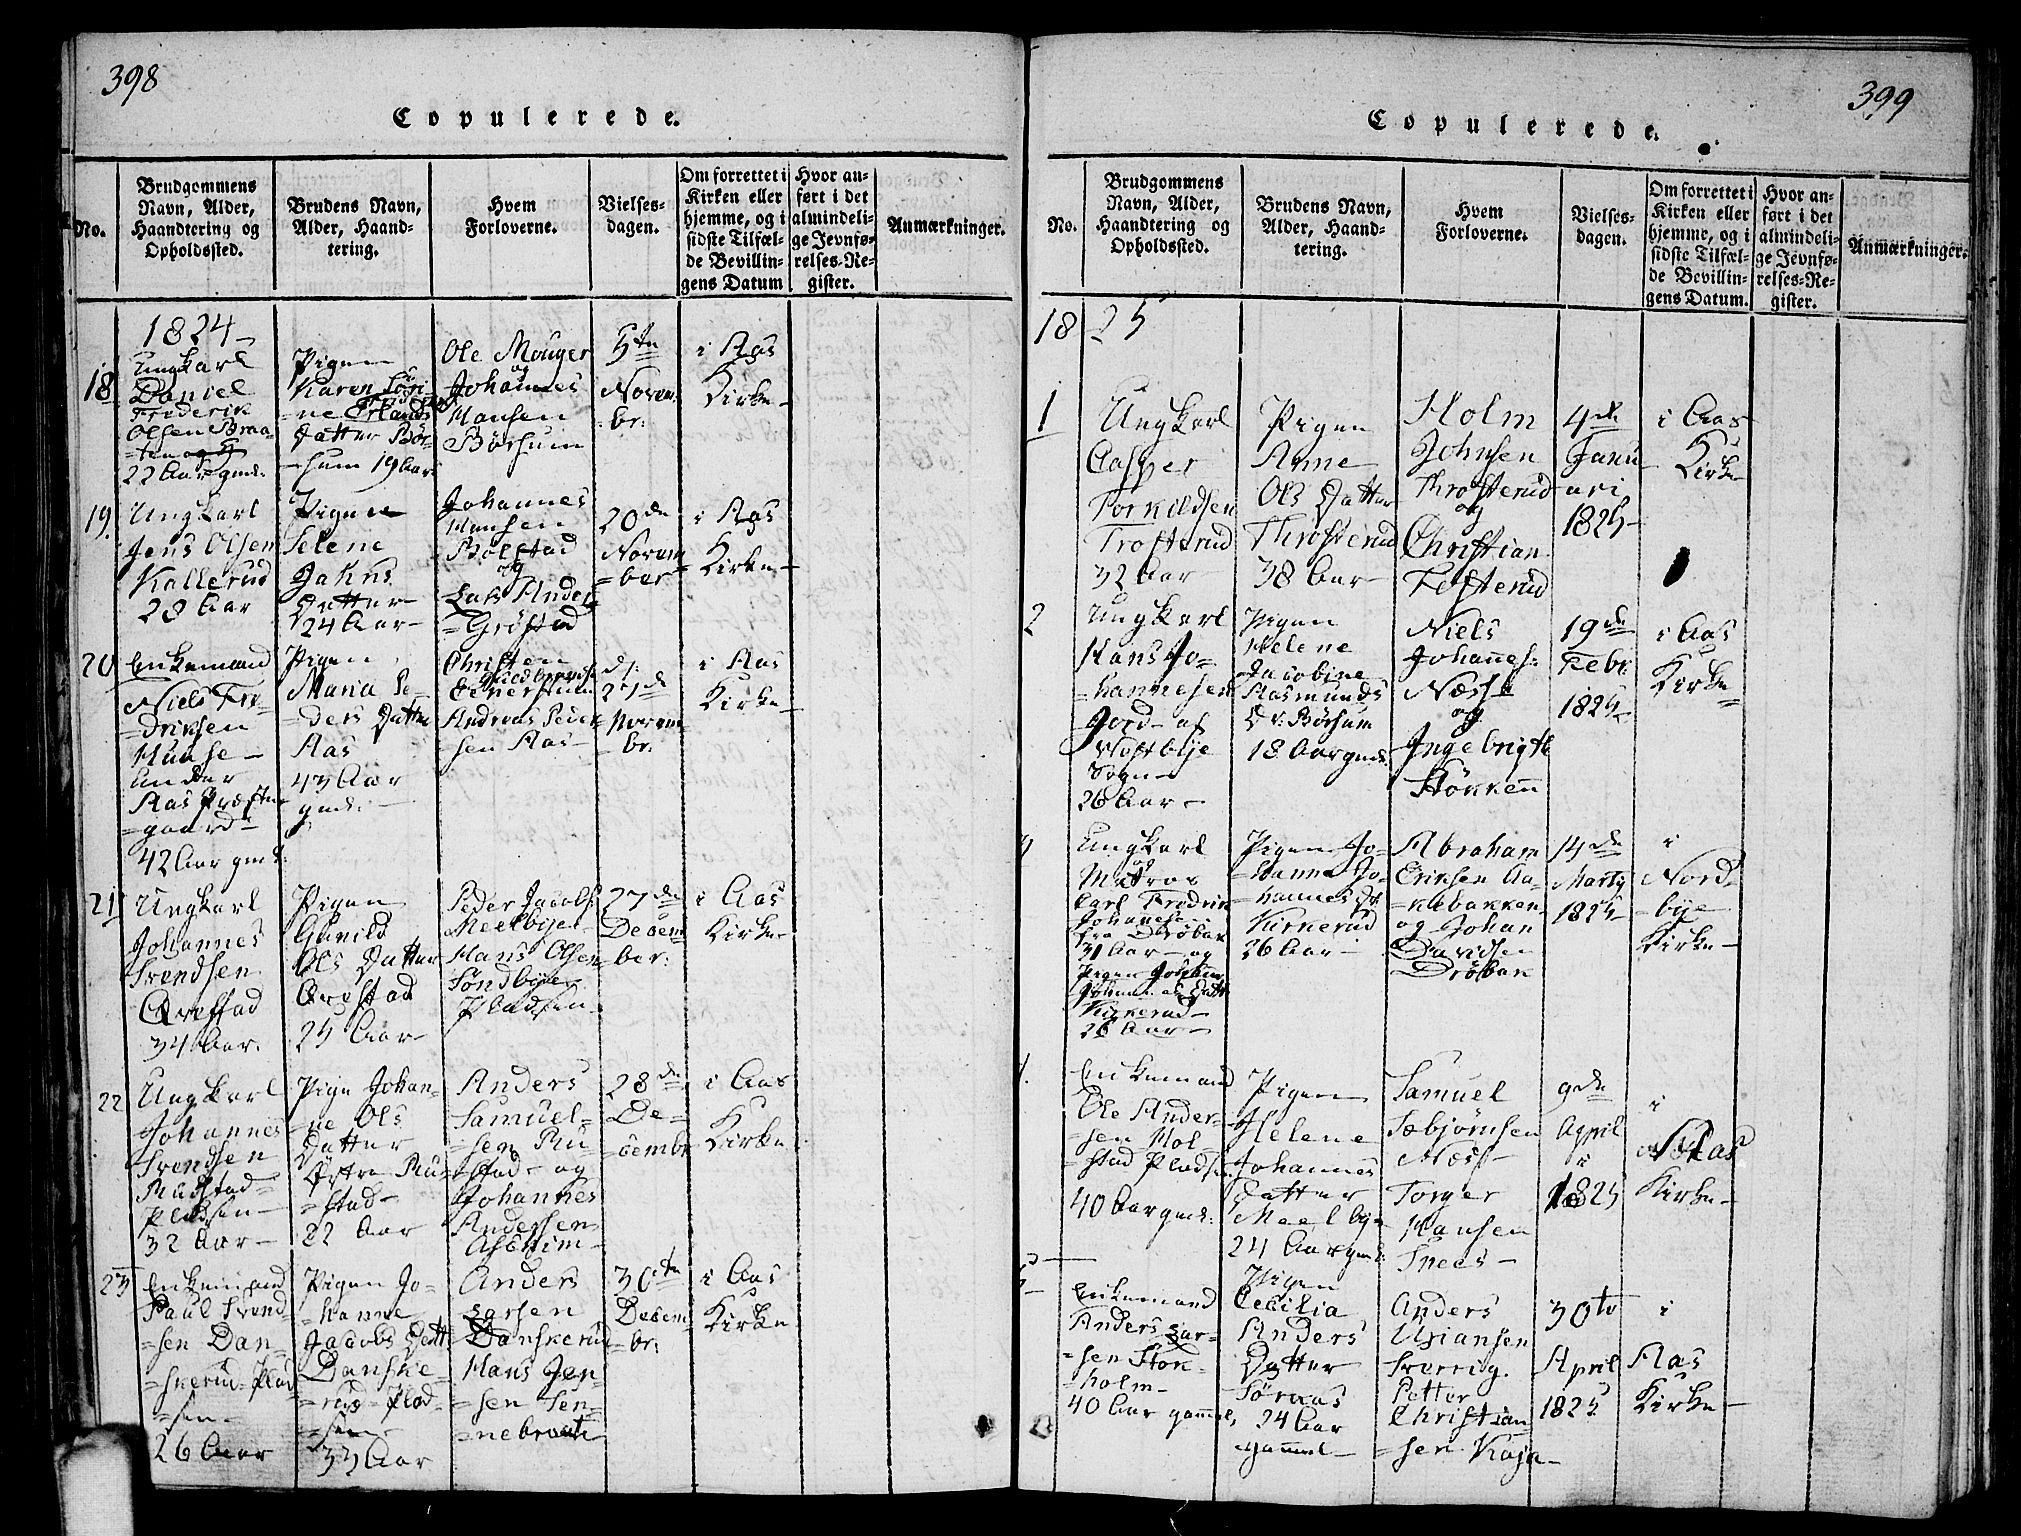 398
Copulerede.
No.
Brudgommens
Navn, Alder,
Haandtering og
Opholdssted.
Brudens Navn,
Alder, Haand-
tering.
Hvem
Forloverne.
Vielses-
dagen.
Om forrettet i
Kirken eller
hjemme, og i
sidste Tilfæl-
de Bevillin-
gens Datum
Hvor an-
ført i det
almindeli-
ge Jevnfø-
relses-Re-
gister.
Anmærkninger.
1824
18
Ungkarl
Daniel
Frederik
Olsen Braa-
22 Aar gml.
Pigen
Karen
-ne Erlands
Datter Bør-
-sum 19 Aar
Ole Mouger
og
Johannes
Hansen
Børsum
5te
Novem-
br:
i Aas
Kirke
19.
Ungkarl
Jens Olsen
Kallerud
28 Aar
Pigen
Helene
Johns
Datter
24 Aar
Johannes
Hansen
Bølstad
og
Lars
=Grøstad
20de
Novem
=ber
i Aas
Kirke
20
Enkemand
Niels Fre-
=driksen
under
Aas Præste
=gaard
42 Aar gml.
Pigen
Maria Pe-
=ders Datter
Aas
43 Aar
gml.
Christen
Andreas Peder
-sen Aas
d:
27de
Novem
br:
i Aas
Kirke
21
Ungkarl
Johannes
Svendsen
34 Aar.
Pigen
Gunild
Ols Datter
25 Aar
Peder Jacobs
Meelbye
Hans Olsen
Søndbye
Pladsen
27de
Decem
=ber:
i Aas
Kirke
22
Ungkarl
Johannes
Svendsen
Rustad
Pladsen
32 Aar
Pige Johan-
=ne Ols
Datter
Østre Ru-
=stad
22 Aar
Anders
Samuel-
=sen Ru-
stad og
Johannes
Andersen
Aschim
28de
De-
cembr
i Aas
Kirke
23
Enkemand
Paul Svend
=sen Dan-
=skerud Plad
=sen
26 Aar
Pigen Jo-
hanne
Jacobs Datt:
Danske-
=rud Plad-
=sen
33 Aar
Anders
Larsen
Danskerud
Hans Jen-
=sen Ten-
=nebraate
30te
Decem-
br:
i Aas
Kirke
399
Copulerede.
No.
Brudgommens
Navn, Alder,
Haandtering og
Opholdssted.
Brudens Navn,
Alder, Haand-
tering.
Hvem
Forloverne.
Vielses-
dagen.
Om forrettet i
Kirken eller
hjemme, og i
sidste Tilfæl-
de Bevillin-
gens Datum.
Hvor an-
ført i det
almindeli-
ge Jevnfø-
relses-Re-
gister.
Anmærkninger.
1825
1
Ungkarl
Casper
Torkildsen
Trosterud
32 Aar
Pigen
Anne
Ols Datter
Throsterud
38 Aar
Holm
Johnsen
Throsterud
og
Christian
Festerud
4de
Janu
ari
1825
i Aas
Kirke
2
Ungkarl
Hans Jo-
=hannesen
Jord af
Vestbye
Sogn
26 Aar
Pigen
Helene
Jacobine
Rasmunds
Dr: Børsum
18 Aar gml.
Niels
Johanes:
Næsse
og
Ingebrigt
Stökken
19de
Febr.
1825
i Aas
Kirke
3
Ungkarl
og
Matros
Carl Fredrik
Johanesen
fra Drøbak
31 Aar og
Pigen Johanne
Kirkerud
26 Aar
Pigen Jo-
hanna Jo-
hannes Dr.
Kirkerud
26 Aar
Abraham
Eriksen Aa-
kebakken
og Johan
Davidsen
Drøbak
14de
Marty
1825
i
Nord-
=bye
Kirke
4.
Enkemand
Ole Ander-
=sen Hol-
=stad Pladsen
40 Aar gml:
Pigen
Helene
Johannes
Datter
Meelbye
24 Aar gml:
Samuel
Tæbjørnsen
Næss
Torger
Hansen
Snees
9de
April
1825
i
Aas
Kirke
5
Enkemand
Anders Lar-
=sen Stok-
=holm
40 Aar gammel,
Pigen
Cecilia
Anders
Datter
Søraas
24 Aar
gammel
Anders
Christian
sen Kaja
30te
April
1825
i
Aas
Kirke